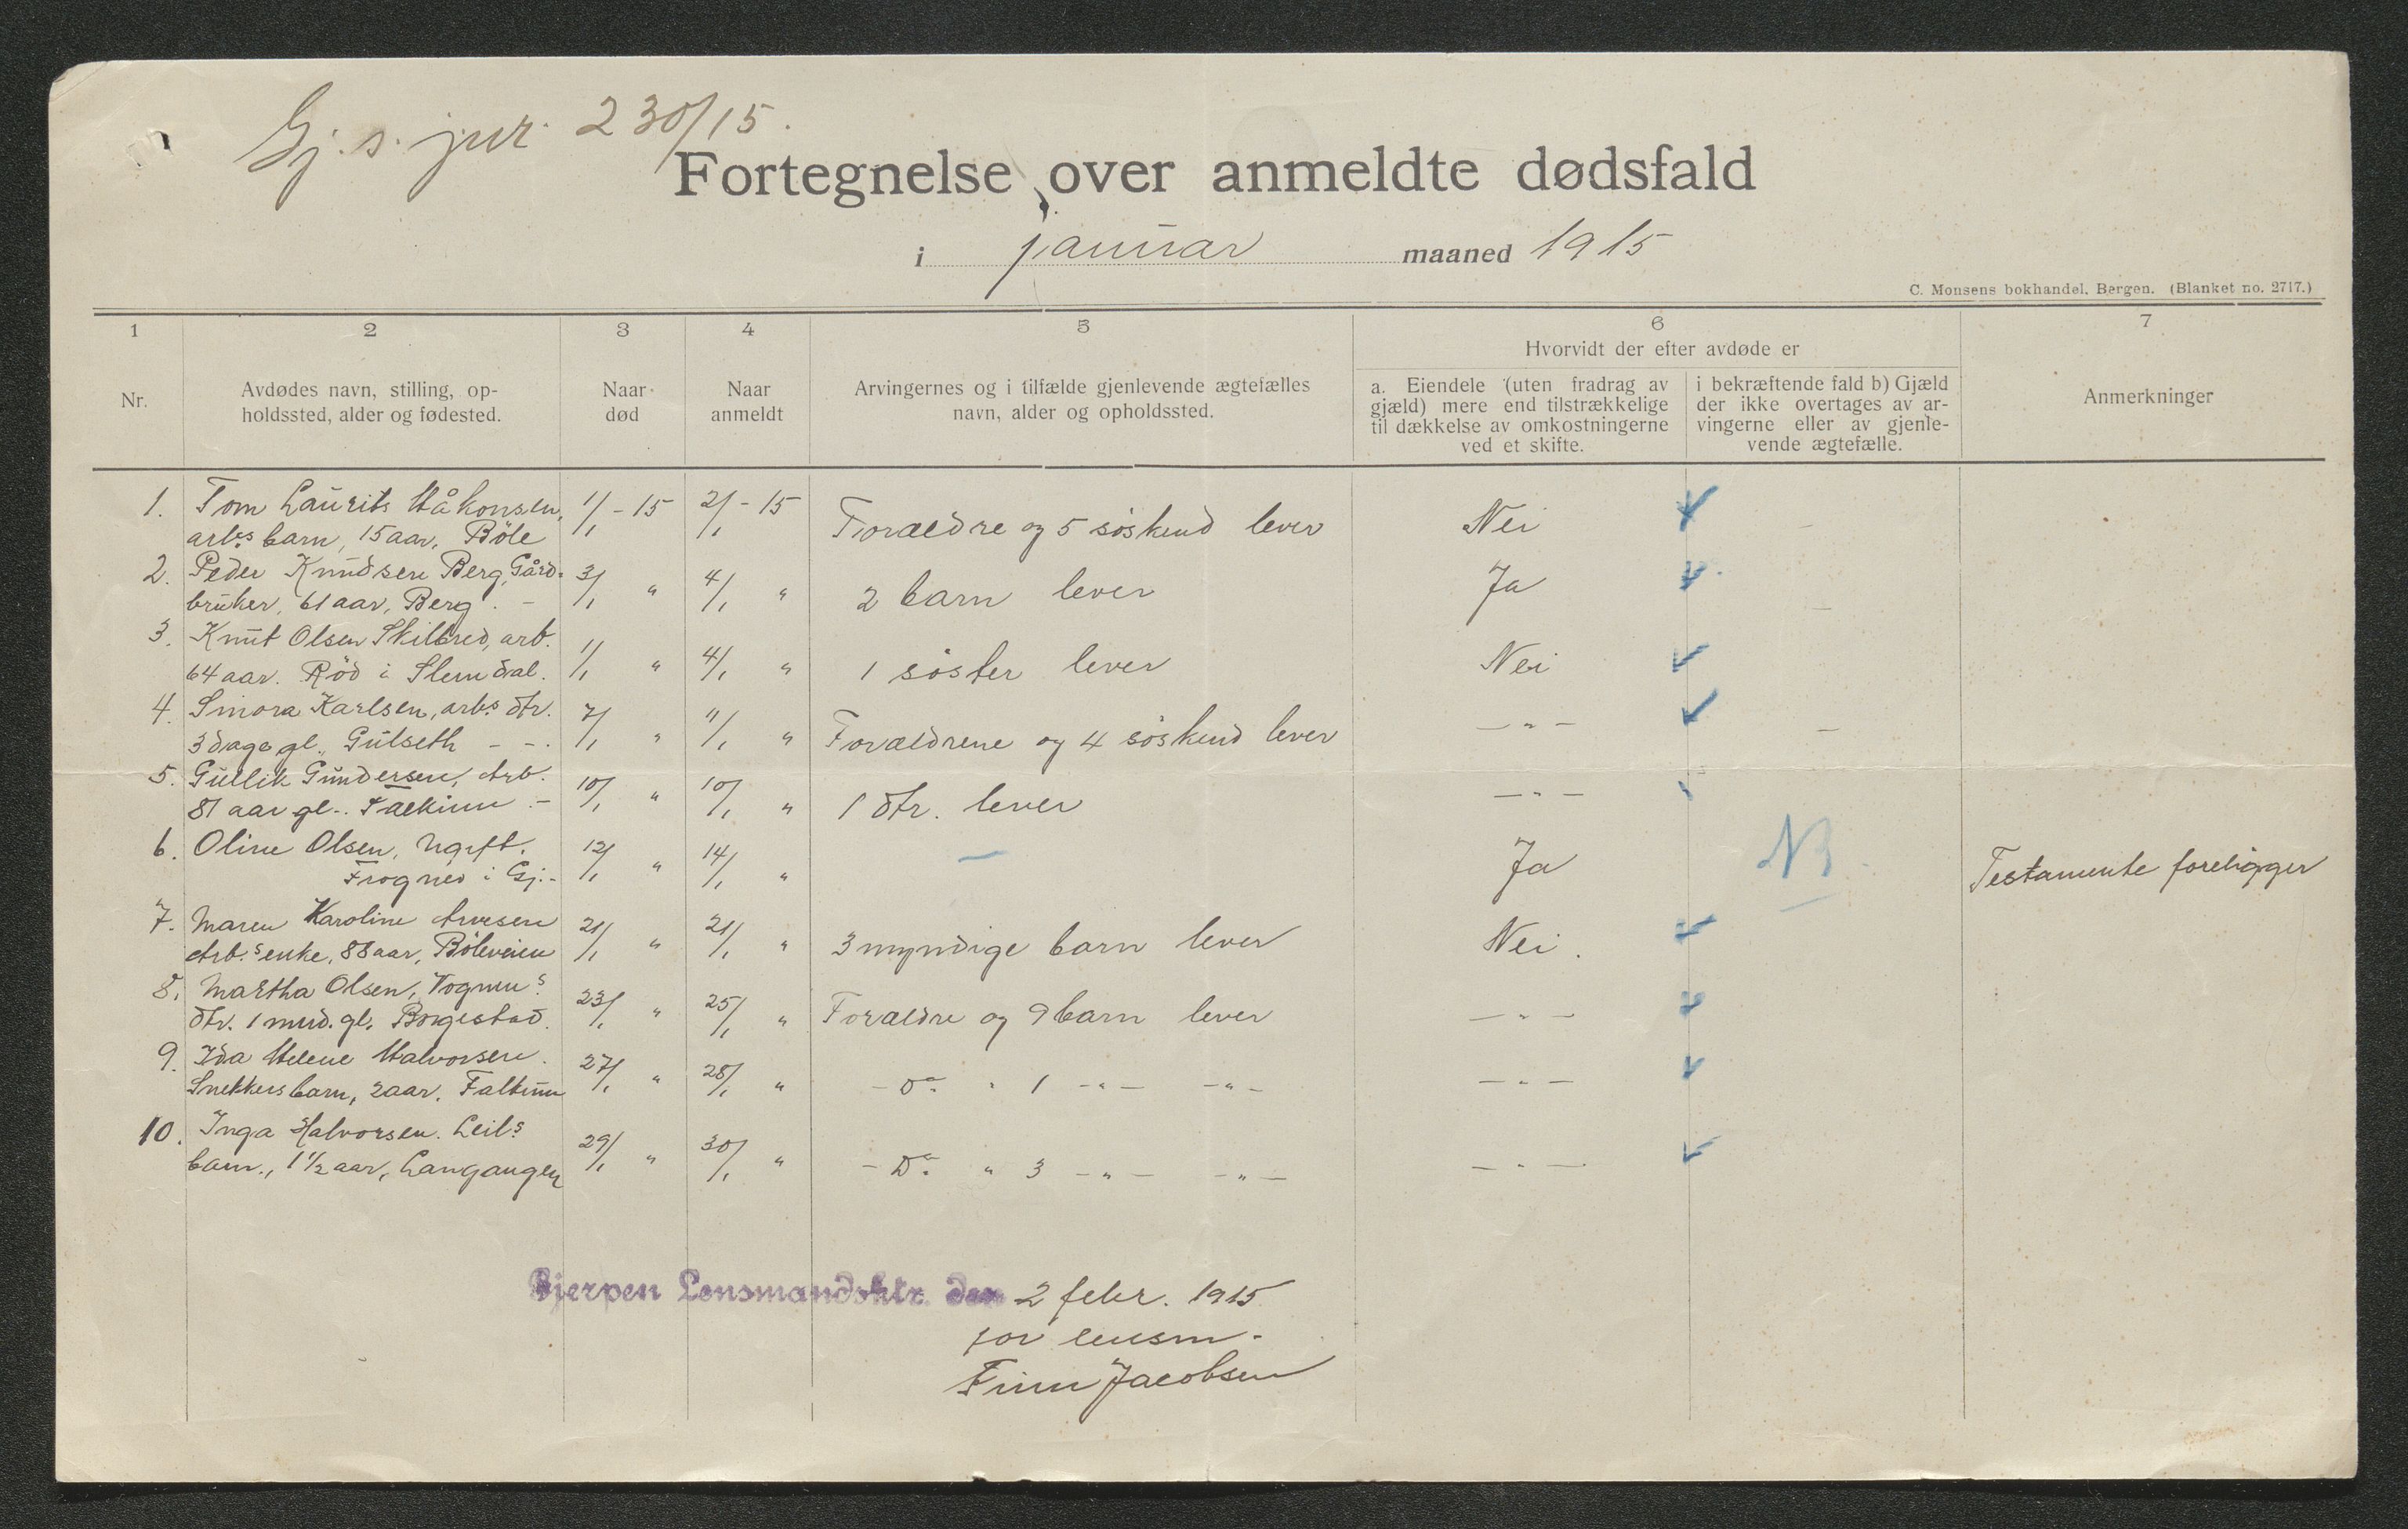 Gj. s. jur. 230/15.
Fortegnelse over anmeldte dødsfald
i januar maaned 1915
C. Monsens bokhandel. Bergen. (Blanket no. 2717.)
1 2 3 4 5 6 7
Nr.
Avdødes navn, stilling, op-
holdssted, alder og fødested.
Naar
død
Naar
anmeldt
Arvingernes og i tilfælde gjenlevende ægtefælles
navn, alder og opholdssted.
Hvorvidt der efter avdøde er
a. Eiendele (uten fradrag av
gjæld) mere end tilstrækkelige
til dækkelse av omkostningerne
ved et skifte.
i bekræftende fald b) Gjæld
der ikke overtages av ar-
vingerne eller av gjenle-
vende ægtefælle.
Anmerkninger
1. Tom Laurits Håkonsen, 1/1 - 15 2/1 - 15 Forældre og 5 søskend lever Nei -
arb.s barn, 15 aar, Böle
2. Peder Knudsen Berg, Gård- 3/1 " 4/1 " 2 barn lever Ja -
bruker, 61 aar, Berg. -
3. Knut Olsen Skilbred, arb. 1/1 " 4/1 " 1 søster lever Nei
64 aar. Röd i Slemdal.
4. Sinora Karlsen, arb.s dtr. 7/1 " 11/1 " Forældrene og 4 søskend lever - " - -
3 dage gl., Gulseth - -.
5. Gullik Gundersen, Arb. 10/1 " 10/1 " 1 dtr. lever - " -
81 aar gl.. Falkum. -
6. Oline Olsen, Ugift. 12/1 " 14/1 " - Ja NB. Testamente foreligger
Frogner i Gj. -
7. Maren Karoline Arvesen 21/1 " 21/1 " 3 myndige barn lever Nei.
Arb.s enke, 88 aar, Böleveien
8. Martha Olsen, Vognm.s 23/1 " 25/1 " Forældre og 9 barn lever - " -
dtr. 1 mnd. gl. Borgestad.
9. Ida Helene Halvorsen. 27/1 " 28/1 " - Do. " 1 - " - - " - - " -
Snekkers barn, 2 aar. Falkum
10. Inga Halvorsen. Leil.s 29/1 " 30/1 " - Do. " 3 - " - - " - - " -
barn., 1 1/2 aar, Langangen
Gjerpen Lensmandsktr. den 2 febr. 1915
for lensm.
Finn Jacobsen